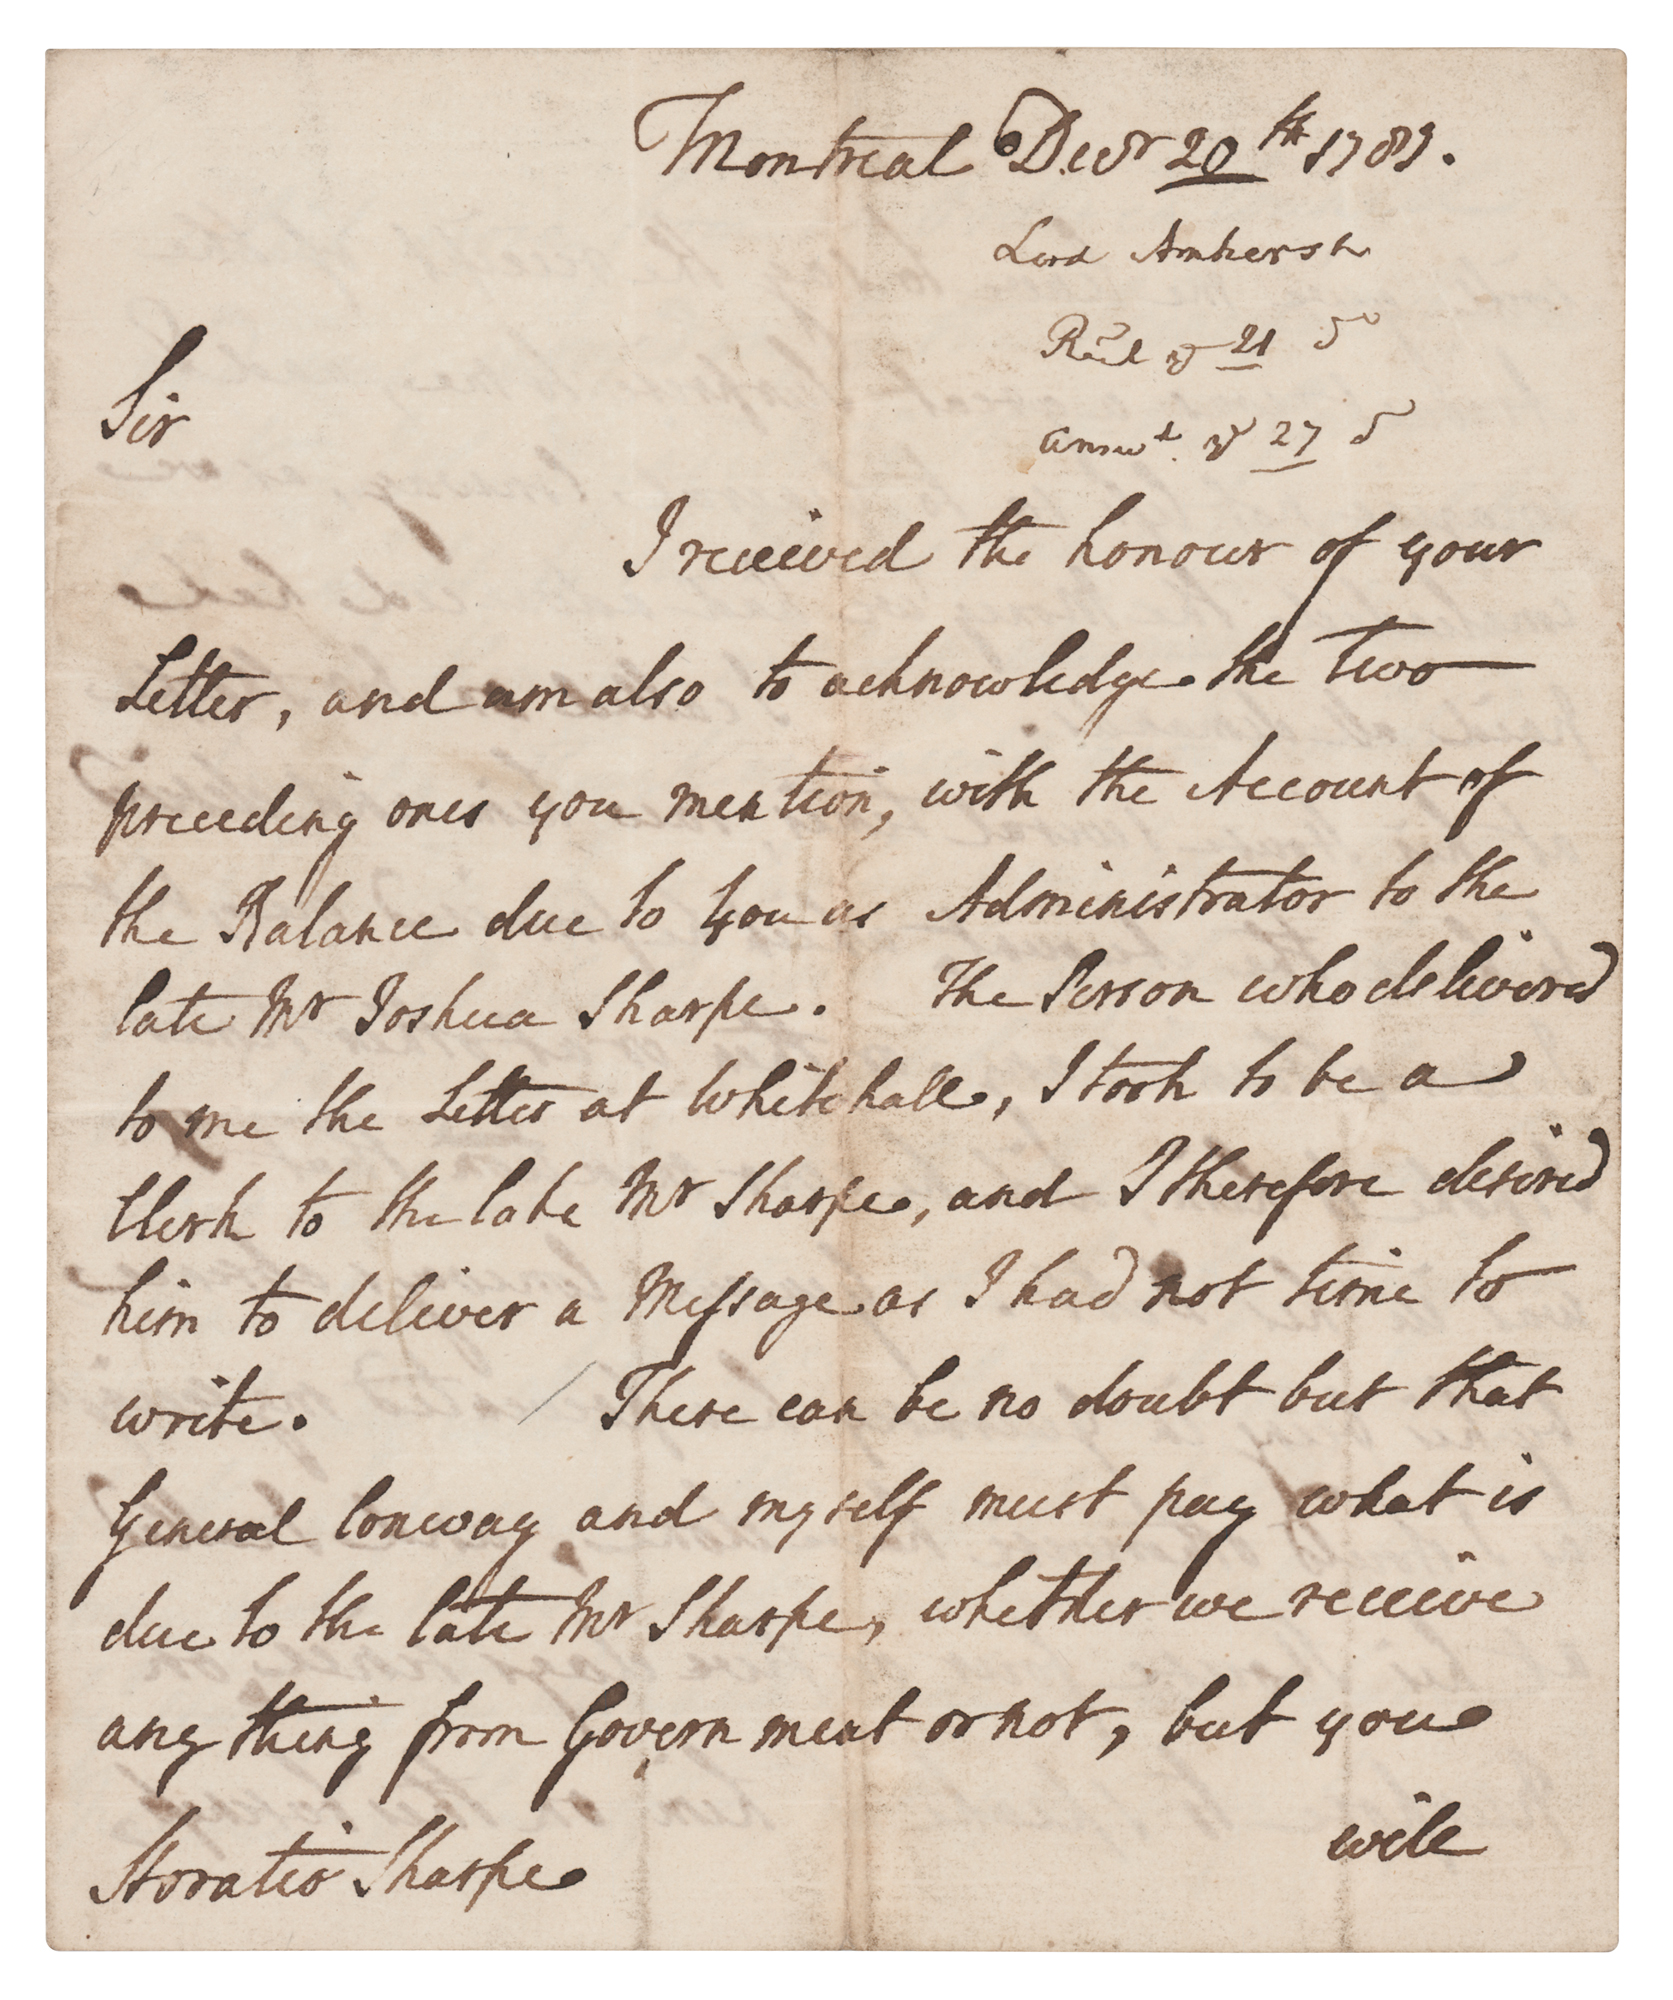 Montreal Decr 20th 1789.
Lord Amherst
Recd ye 21 Do
answd. ye 27 Do
Sir
I received the honour of your
Letter, and am also to acknowledge the two
preceeding ones you mention, with the Account of
the Balance due to you as Administrator to the
late Mr Joshua Sharpe. The Person who delivered
to me the Letter at Whitehall, I took to be a
Clerk to the late Mr Sharpe, and I therefore desired
him to deliver a Message as I had not time to
write. / There can be no doubt but that
General Conway and myself must pay what is
due to the late Mr Sharpe, whether we receive
any thing from Government or not, but you
will
Horatio Sharpe